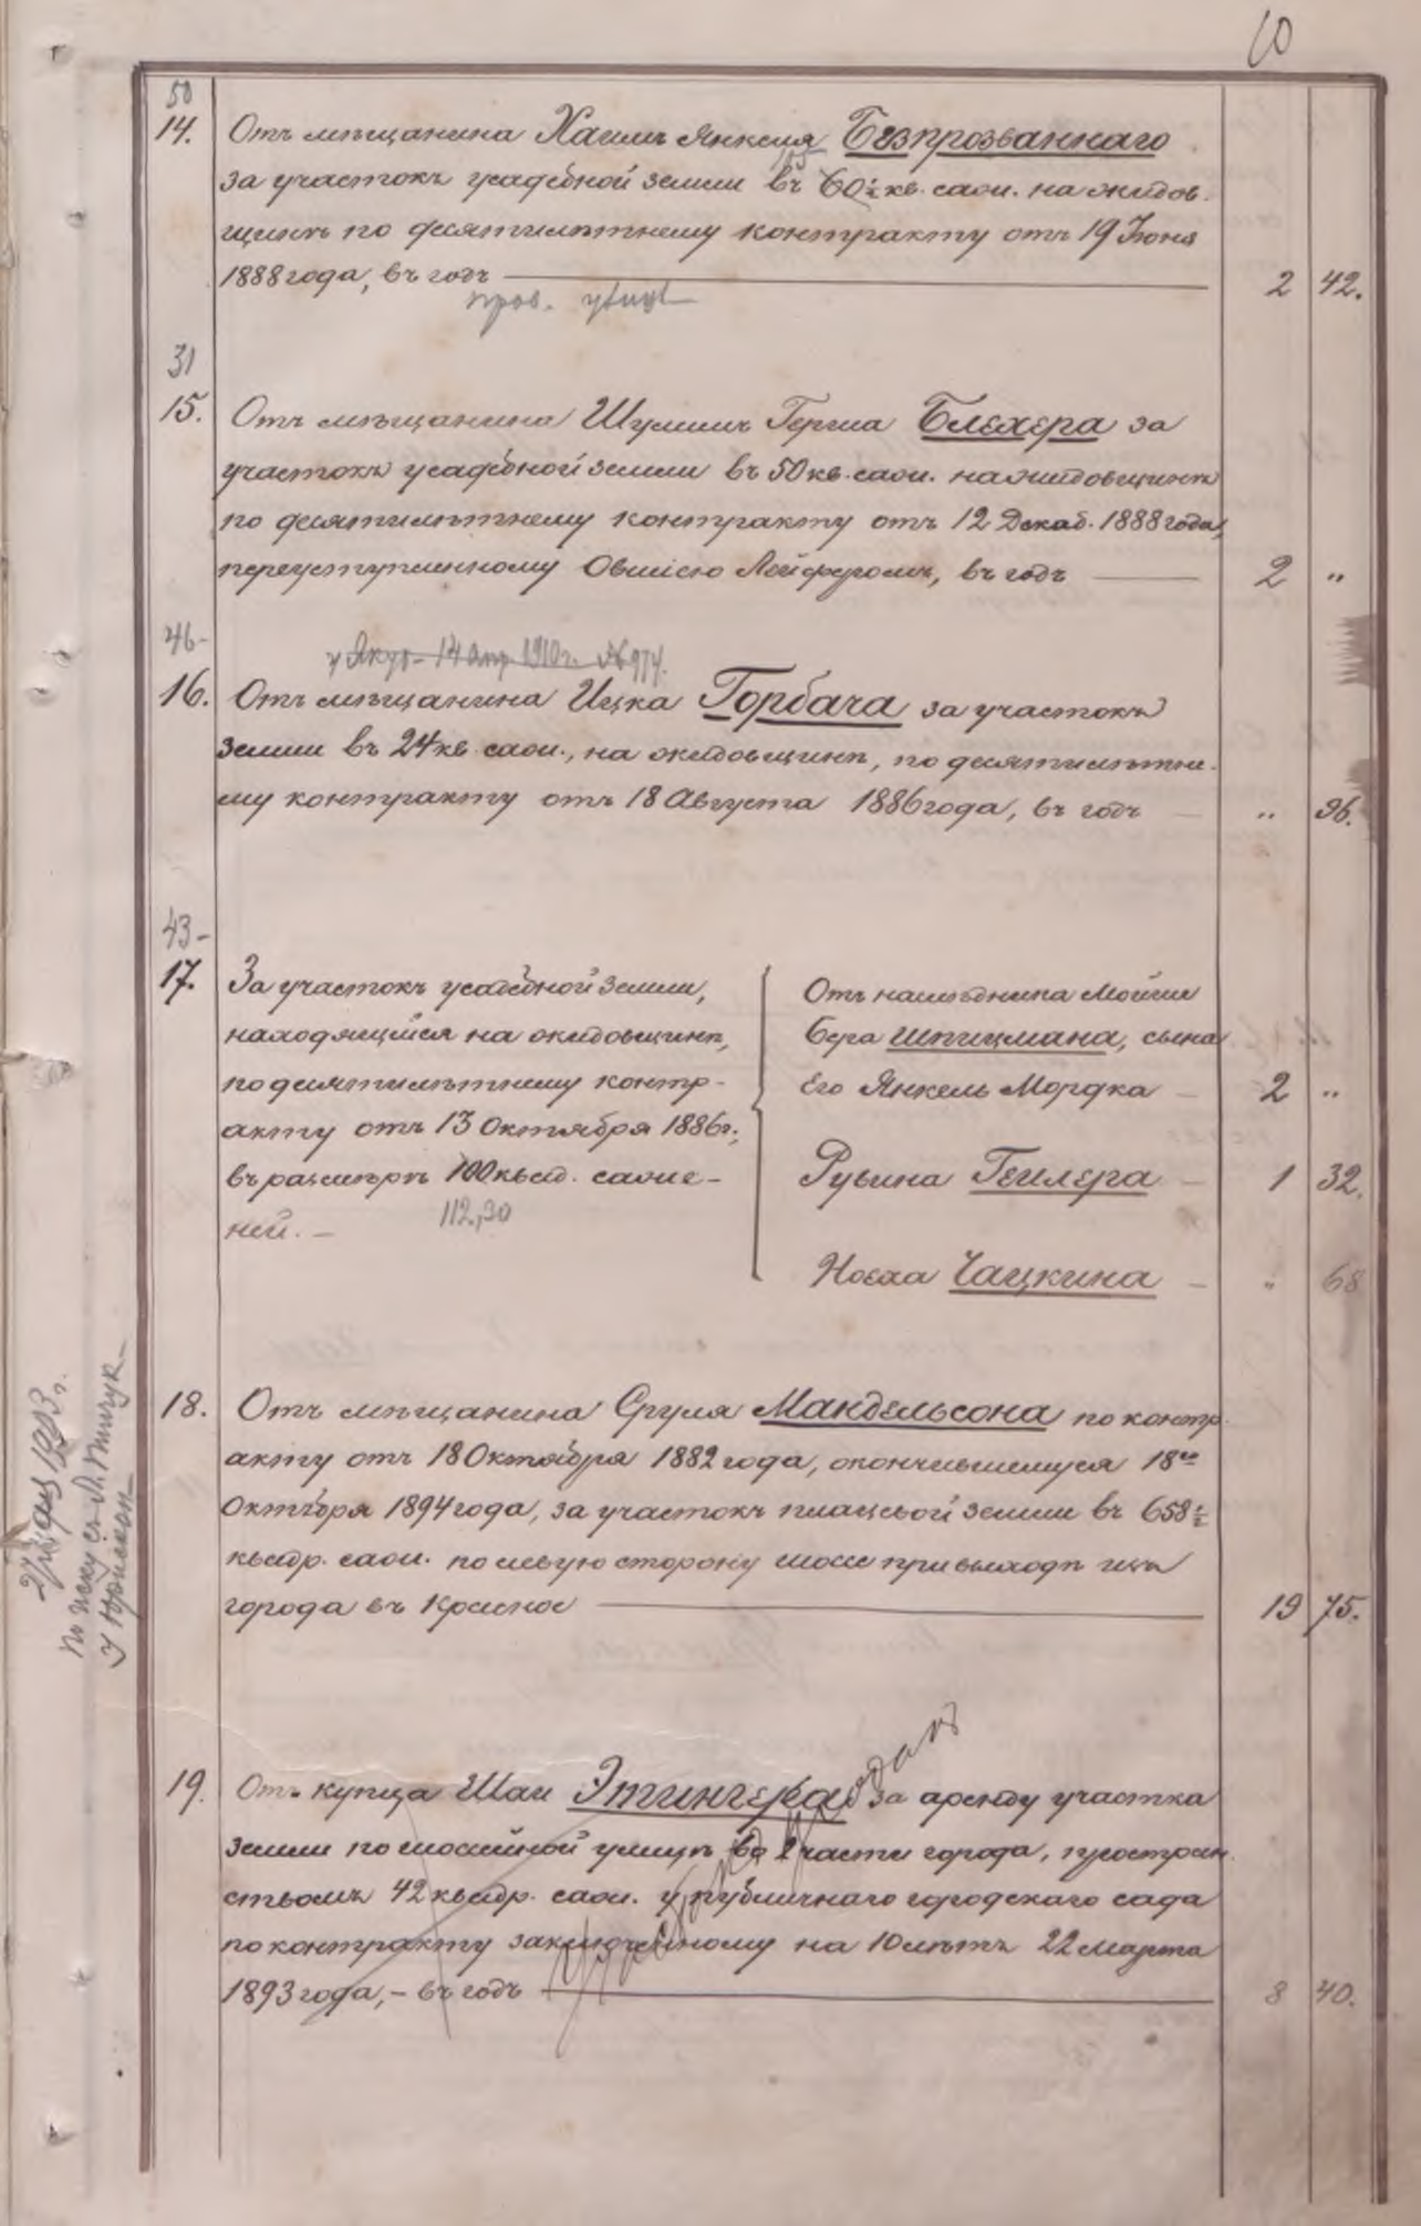 10
50
14. Отъ мѣщанина Хаима Янкеля Безпрозваннаго
за участокъ усадебной земли въ 60½ кв. саж. на жидов-
щинѣ по десятилѣтнему контракту отъ 19 Іюня
1888 года, въ годъ 2 42.
31
15. Отъ мѣщанина Шулима Герша Блехера за
участокъ усадебной земли въ 50 кв. саж. на жидовщинѣ
по десятилѣтнему контракту отъ 12 Декаб. 1888 года,
переуступленному Овшіею Лейферомъ, въ годъ 2 "
46-
14 апр. 1910 г. №974.
16. Отъ мѣщанина Ицка Горбача за участокъ
земли въ 24 кв. саж., на жидовщинѣ, по десятилѣтне-
му контракту отъ 18 Августа 1886 года, въ годъ " 96.
43-
17. За участокъ усадебной земли,
находящійся на жидовщинѣ,
по десятилѣтнему контр-
акту отъ 13 Октября 1886 г.,
въ размѣрѣ 100 квад. саже-
ней. -
112,30
Отъ наслѣдника Мойше
Бера Шпицмана, сына
Его Янкель Мордка - 2 "
Рувина Геилера - 1 32.
Ноеха Чацкина - " 68
18. Отъ мѣщанина Сруля Мандельсона по контр-
акту отъ 18 Октября 1882 года, окончившемуся 18го
Октября 1894 года, за участокъ плацевой земли въ 658½
квадр. саж. по лѣвую сторону шоссе при выходѣ изъ
города въ Красное 19 75.
1903 г.
по иску съ
19. Отъ купца Шаи Этингера за аренду участка
земли по шоссейной улицѣ во 2 части города, простран-
ствомъ 42 квадр. саж. у публичнаго городскаго сада
по контракту заключенному на 10 лѣтъ 22 Марта
1893 года, - въ годъ 8 40.